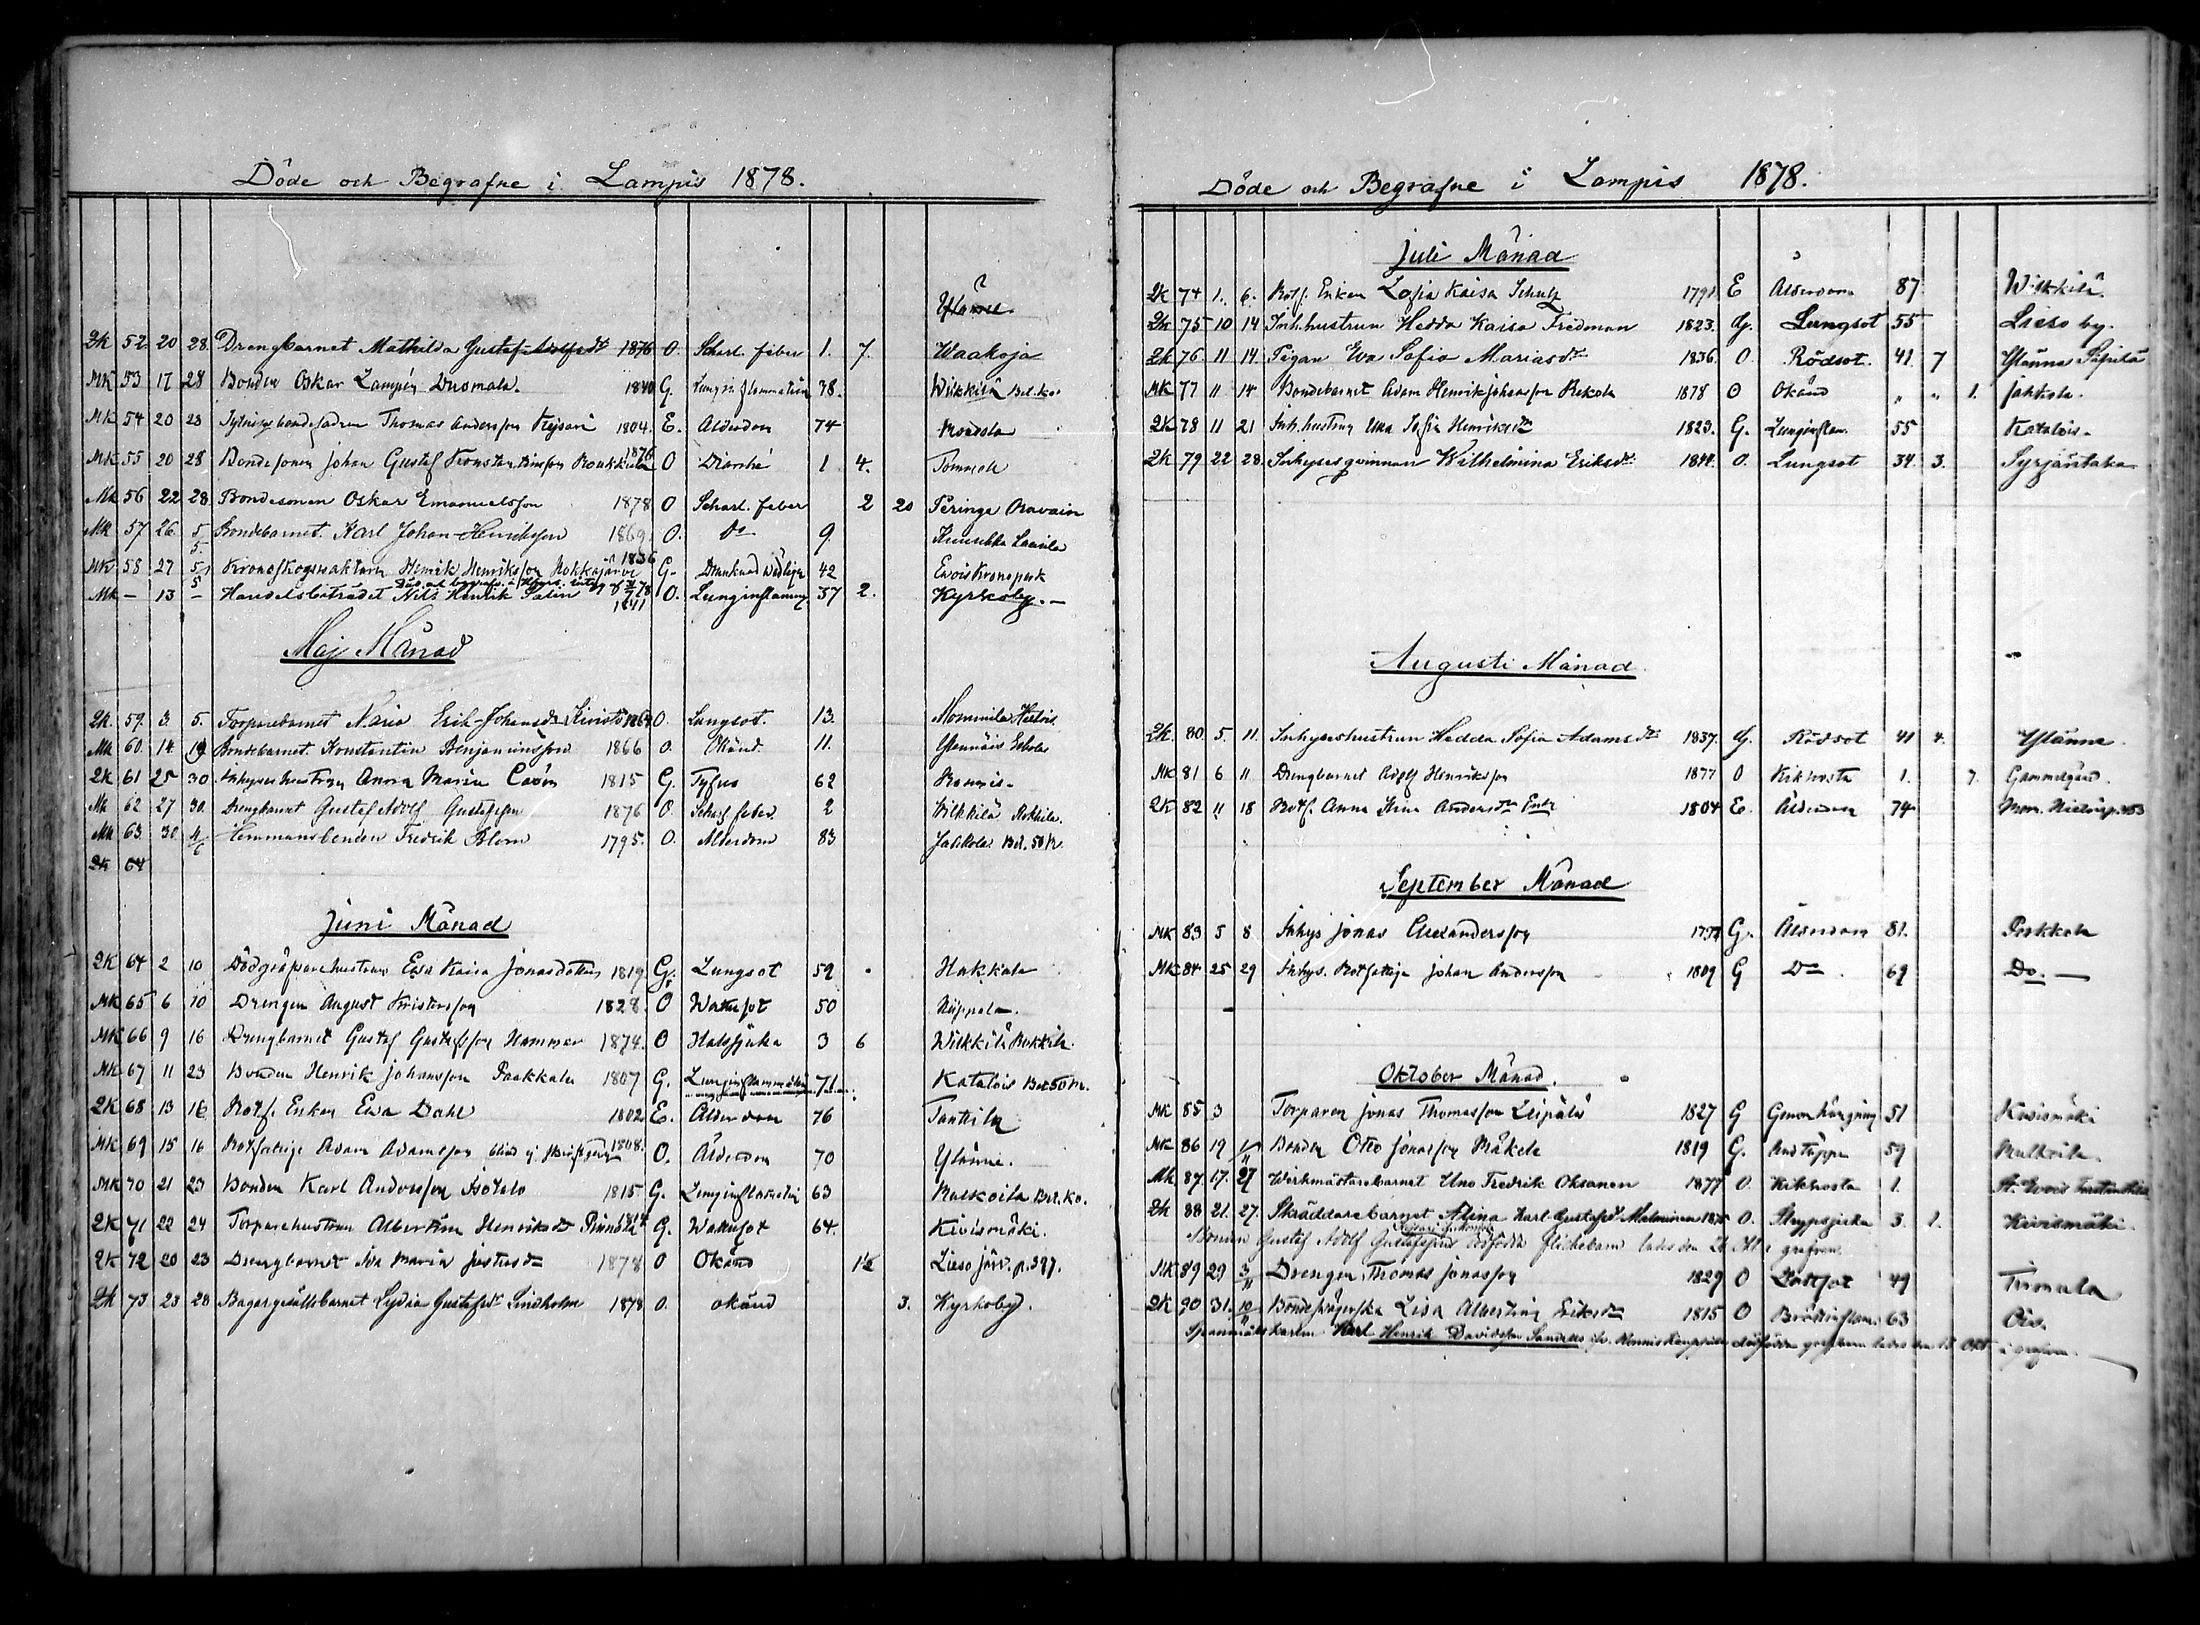 Döde och Begrafne i Lampis 1878.
Ylänne.
QK 52. 20 28. Drengbarnet Mathilda Gustaf Adolfsdr 1876 O. Scharl. feber 1. 7. Waakoja
MK 53 17 28 Bonden Oskar Lampén Dusmala. 1840 G. Lunginflammation 38. Wilkkilä Bet.ko
MK 54 20 28 Sytningsbondefadren Thomas Andersson Keysari 1804. E. Ålderdom 74
MK 55 20 28 Bondesonen Johan Gustaf Konstantinsson 1876 O Diarrhé 1 4. Tommola
MK 56 22 28 Bondesonen Oskar Emanuelsson 1878 O Scharl. feber 2 20 Peringa Oravain
MK 57 26 5/5. Bondebarnet. Karl Johan Henriksson 1869. O. Do 9. Laurila
MK 58 27 5/5 Kronoskogvaktaren Henrik Henriksson Hokkajärvi 1836 G. Drunknad 42 Evois Kronopark
MK – 13 – Handelsbiträdet Nils Henrik Salin 1841 O. Lunginflamm. 37 2. Kyrkoby. –
Maj Månad
QK 59. 3 5. Torparebarnet Maria Erik-Johansdr Kivistö 1864 O. Lungsot. 13. Mommila
MK 60. 14. 19 Bondebarnet. Konstantin Benjaminsson 1866 O. Okänd 11. Ylennäis
QK 61 25 30 Inhyseshustrun Anna Maria 1815 G. Tyfus 62 Ronnis.
MK 62 27 30. Drengbarnet Gustaf Adolf Gustafsson 1876 O. Scharl. feber. 2 Wilkkilä Rekkila.
MK 63 30. 4/6 Hemmansbonden Fredrik Blom 1795. O. Ålderdom 83 Jahkola Bet. 50 p.
QK 64
Juni Månad
QK 64 2 10 Dödgräfvarehustrun Ewa Kaisa Jonasdotter 1819 G. Lungsot 59 Hakkala
MK 65 6 10 Drengen August Kristersson 1828. O Wattusot 50 Nippala.
MK 66 9 16 Drengbarnet Gustaf Gustafsson Hammar 1874. O Halssjuka 3 6 Wilkkilä Rekkila.
MK 67 11 23 Bonden Henrik Johansson Paakkala 1807 G. Lunginflammation 71 Katalois Bet 50 p.
QK 68 13 16 Rotf. Enkan Ewa Dahl 1802 E. Ålderdom 76 Tanttila
MK 69 15 16 Rotfattige Adam Adamsson blind ej skriftgången 1808. O. Ålderdom 70 Ylänne.
MK 70 21 23 Bonden Karl Andersson Isotalo 1815 G. Lunginflammation 63 Bet. ko.
QK 71 22 24 Torparehustrun Albertina Henriksdr 1814 G. Wattusot 64. Kivismäki.
QK 72 20 23 Drengbarnet Ida Maria Justusdr 1878 O Okänd 1½ Lieso järv. p. 397.
QK 73 23 28 Bagargesällsbarnet Lydia Gustafsdr Lindholm 1878 O. okänd 3. Kyrkoby.
Döde och Begrafne i Lampis 1878.
Juli Månad
QK 74 1. 6. Rotf. Enkan Sofia Kaisa Schultz 1791 E Ålderdom 87 Wilkkilä.
QK 75 10 14 Inh.hustrun Hedda Kaisa Fredman 1823. G. Lungsot 55 Lieso by.
QK 76 11 14. Pigan Eva Sofia Mariasdr 1836. O. Rödsot. 41. 7 Ylänne
MK 77 11 14 Bondebarnet Adam Henrik Johansson Rekola 1878 O Okänd " " 1. Jahkola.
QK 78 11 21 Inh.hustrun Ulla Sofia Henriksdr 1823. G. Lunginflam. 55 Katalois.
QK 79 22 28. Inhysesqvinnan Wilhelmina Eriksdr 1844. O. Lungsot 34. 3. Syrjäntaka
Augusti Månad.
QK. 80. 5. 11. Inhyseshustrun Hedda Sofia Adamsdr 1837. G. Rödsot 41 4. Ylänne.
MK 81 6 11 Drengbarnet Adolf Henriksson 1877 O Kikhosta 1. 7. Gammelgård.
QK 82 11 18 Rotf. Anna Stina Andersdr Enk 1804 E. Ålderdom 74
September Månad
MK 83 5 8 Inhys Jonas Alexandersson 1797 G. Ålderdom 81. Porkkola
MK 84 25 29 Inhys. Rotfattige Johan Andersson 1809 G Do. 69 Do. –
Oktober Månad.
MK 85 3 Torparen Jonas Thomasson Leipälä 1827 G Genom hängning 51 Kivismäki
MK 86 19 1/11 Bonden Otto Jonasson Mäkelä 1819 G. Andtäppa 59
MK 87. 17. 27 Werkmästarebarnet Uno Fredrik Oksanen 1877 O. Kikhosta 1. St. Evois
QK 88 21. 27. Skräddarebarnet Alina Karl-Gustafsdr Malminen 1875 O. Strypsjuka 3. 1. Kivismäki.
Gustaf Adolf Gustafssons dödfödda flickebarn lades den i grafven.
MK 89 29 3/11 Drengen Thomas Jonasson 1829 O 49 Tirmula
QK 90 31. 10/11 Lisa Albertina Eriksdr 1815 O Bröstinflam. 63 Ois.
Karl Henrik Davidsson dödfödda lades den 13 Okt i grafven.